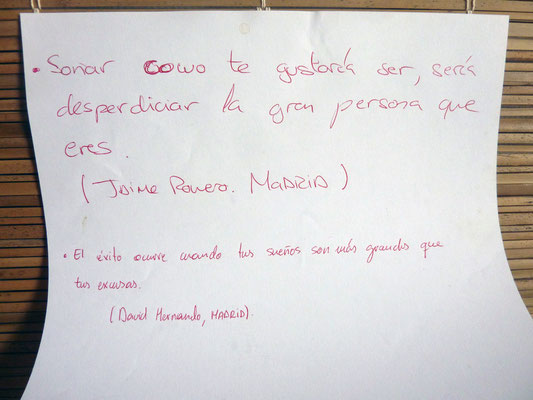 • Soñar como te gustaría ser, sería
desperdiciar la gran persona que
eres.
(JAIME ROMERO. MADRID)
• El éxito ocurre cuando tus sueños son más grandes que
tus excusas.
(David Hernando, MADRID).